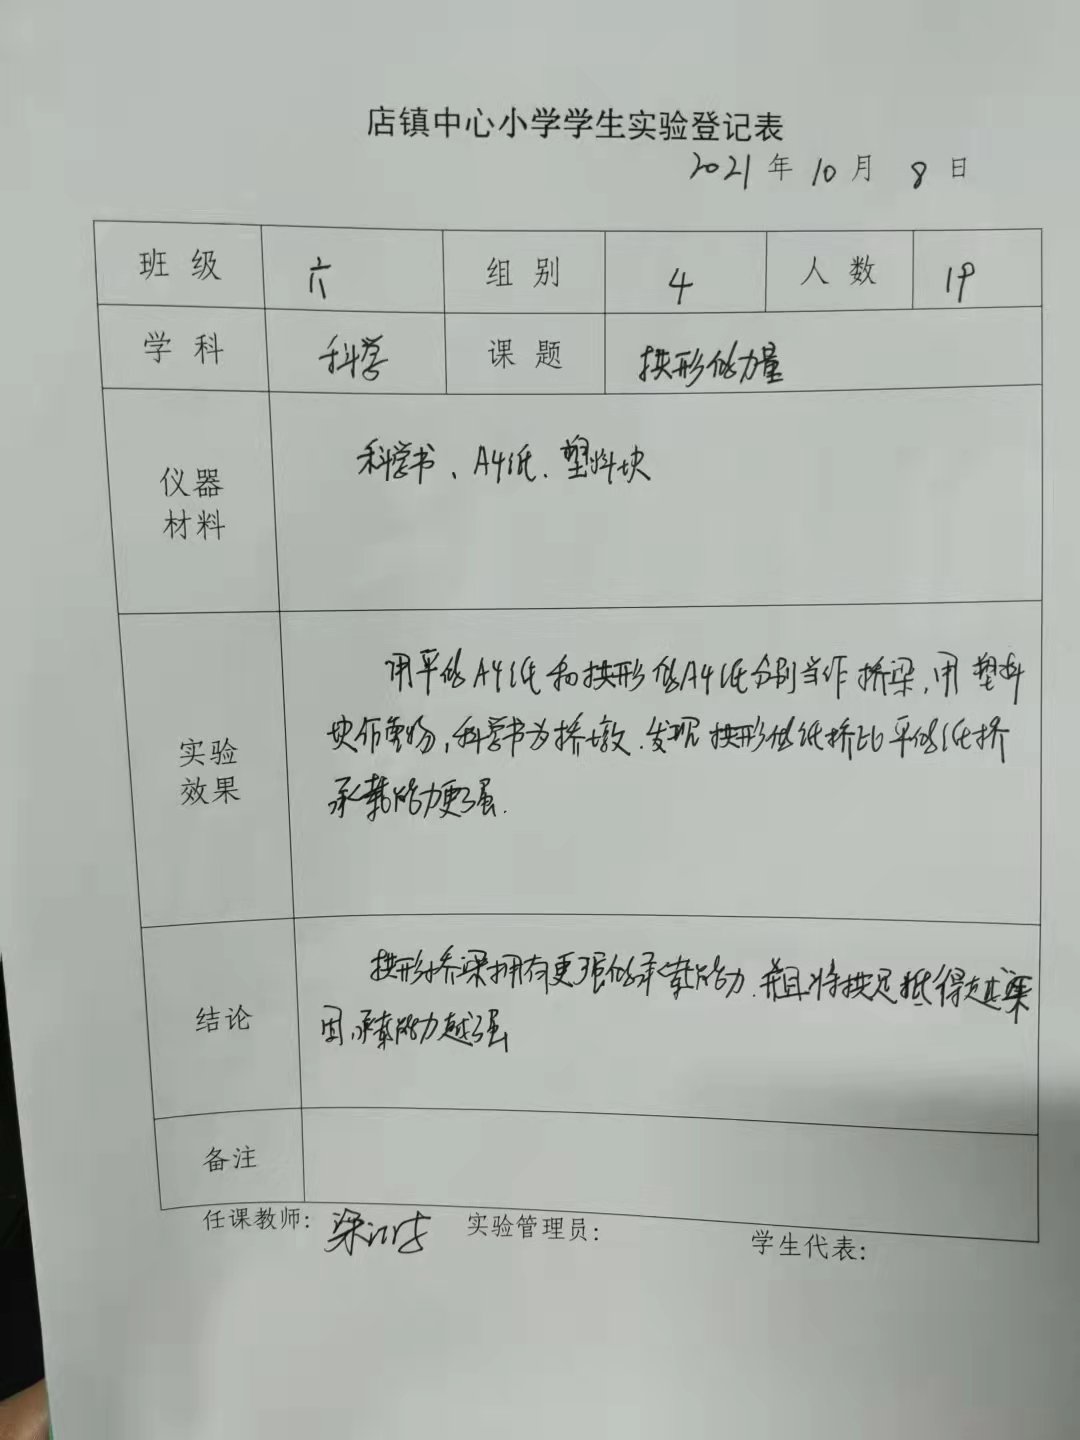 店镇中心小学学生实验登记表
2021年10月8日
班级 六 组别 4 人数 19
学科 科学 课题 拱形的力量
仪器
材料
科学书、A4纸、塑料块
实验
效果
用平的A4纸和拱形的A4纸分别当作桥梁,用塑料
块作重物,科学书为桥墩.发现拱形的纸桥比平的纸桥
承载能力更强.
结论
拱形桥梁拥有更强的承载能力.并且将拱足抵得越
固,承载能力越强
备注
任课教师: 梁 实验管理员: 学生代表: